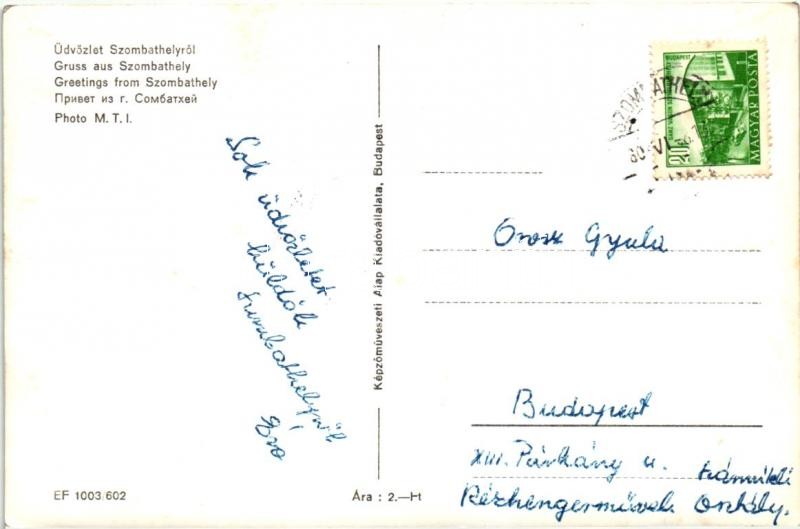 Üdvözlet Szombathelyről
Gruss aus Szombathely
Greetings from Szombathely
Привет из г. Сомбатхей
Photo M. T. I.
Sok üdvözletet
küldök
Szombathelyről
EF 1003/602
Ára : 2.—Ft
Képzőművészeti Alap Kiadóvállalata, Budapest
BUDAPEST
20
MAGYAR POSTA
SZOMBATHELY
Orosz Gyula
Budapest
XIII. Párkány u.
Osztály.